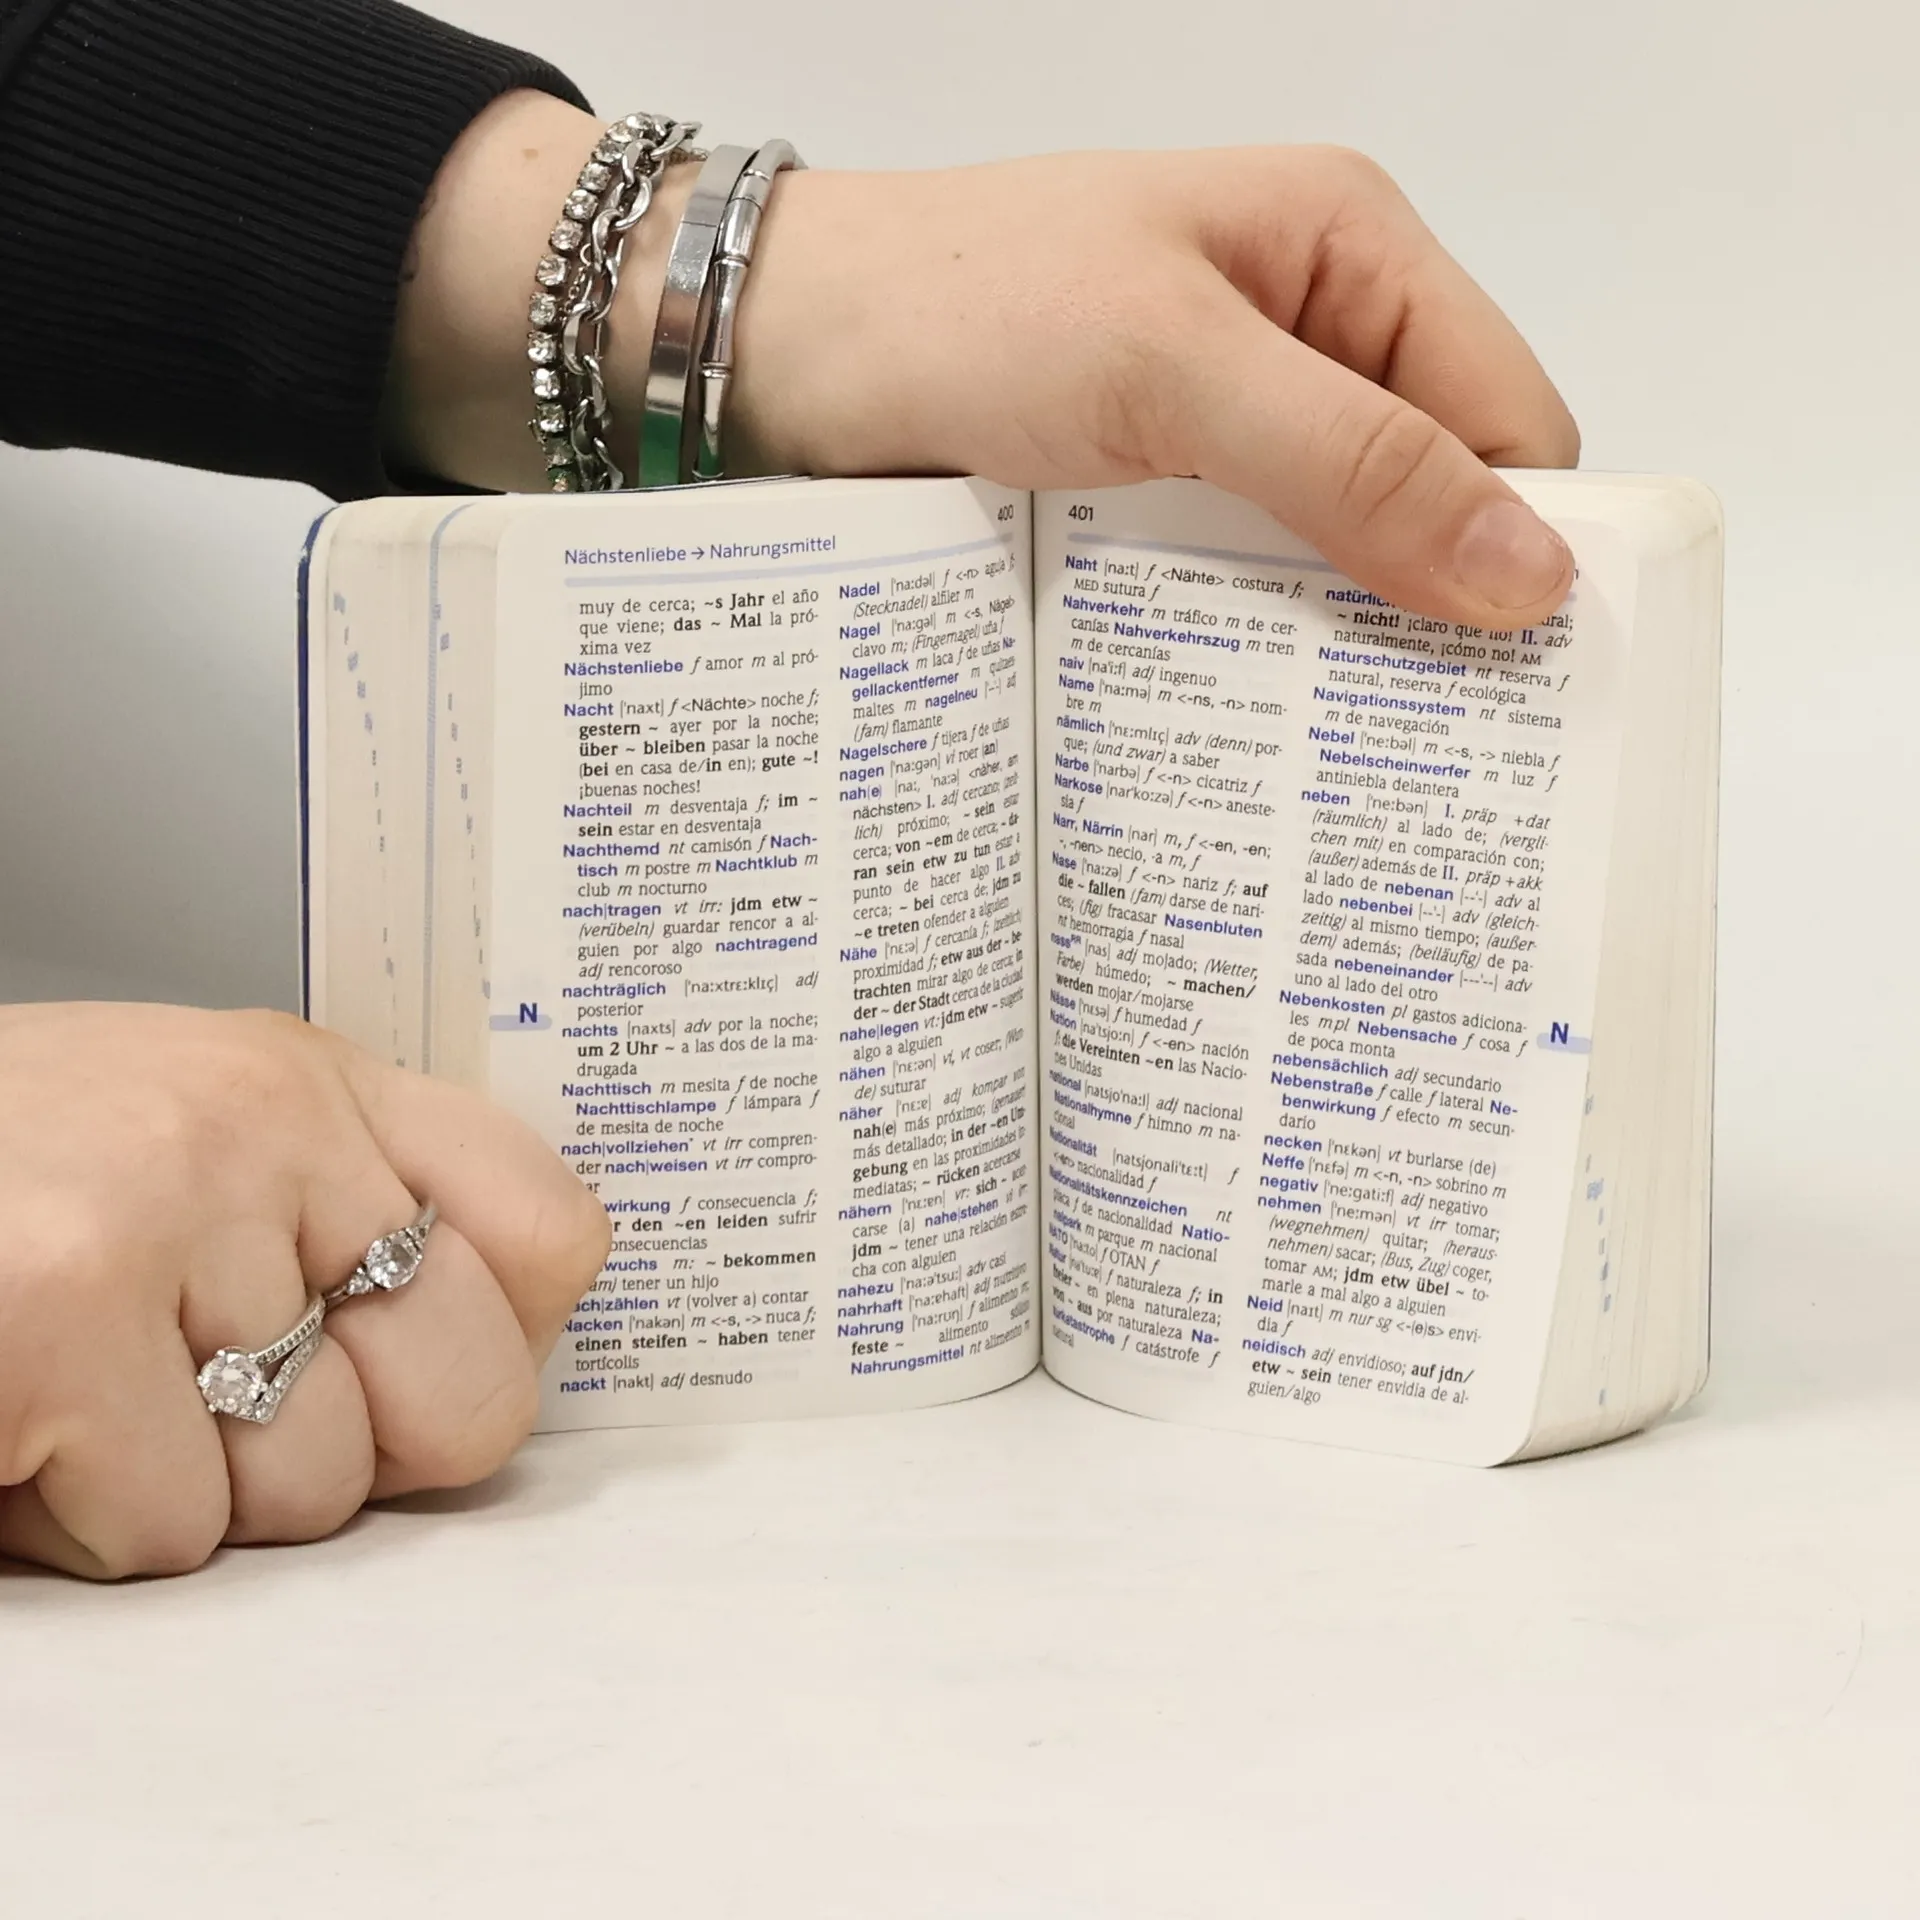 400
Nächstenliebe → Nahrungsmittel
muy de cerca; ~s Jahr el año
que viene; das ~ Mal la pró-
xima vez
Nächstenliebe f amor m al pró-
jimo
Nacht ['naxt] f <Nächte> noche f;
gestern ~ ayer por la noche;
über ~ bleiben pasar la noche
(bei en casa de/in en); gute ~!
¡buenas noches!
Nachteil m desventaja f; im ~
sein estar en desventaja
Nachthemd nt camisón f Nach-
tisch m postre m Nachtklub m
club m nocturno
nach|tragen vt irr: jdm etw ~
(verübeln) guardar rencor a al-
guien por algo nachtragend
adj rencoroso
nachträglich ['na:xtrɛ:klɪç] adj
posterior
nachts [naxts] adv por la noche;
um 2 Uhr ~ a las dos de la ma-
drugada
Nachttisch m mesita f de noche
Nachttischlampe f lámpara f
de mesita de noche
nach|vollziehen* vt irr compren-
der nach|weisen vt irr compro-
ar
wirkung f consecuencia f;
r den ~en leiden sufrir
onsecuencias
wuchs m: ~ bekommen
am) tener un hijo
ach|zählen vt (volver a) contar
Nacken ['nakən] m <-s, -> nuca f;
einen steifen ~ haben tener
tortícolis
nackt [nakt] adj desnudo
Nadel ['na:dəl] f <-n> aguja f;
(Stecknadel) alfiler m
Nagel ['na:gəl] m <-s, Nägel>
clavo m; (Fingernagel) uña f
Nagellack m laca f de uñas Na-
gellackentferner m quitaes
maltes m nagelneu ['--'-] adj
(fam) flamante
Nagelschere f tijera f de uñas
nagen ['na:gən] vi roer (an)
nah(e) [na:, 'na:ə] <näher, am
nächsten> I. adj cercano; (zeit-
lich) próximo; ~ sein estar
cerca; von ~em de cerca; ~ da-
ran sein etw zu tun estar a
punto de hacer algo II. adv
cerca; ~ bei cerca de; jdm zu
~e treten ofender a alguien
Nähe ['nɛ:ə] f cercanía f; (zeitlich)
proximidad f; etw aus der ~ be-
trachten mirar algo de cerca; in
der ~ der Stadt cerca de la ciudad
nahe|legen vt: jdm etw ~ sugerir
algo a alguien
nähen ['nɛ:ən] vi, vt coser; (Wun-
de) suturar
näher ['nɛ:ɐ] adj kompar von
nah(e) más próximo; (genauer)
más detallado; in der ~en Um-
gebung en las proximidades in-
mediatas; ~ rücken acercarse
nähern ['nɛ:ɐn] vr: sich ~ acer-
carse (a) nahe|stehen vi irr:
jdm ~ tener una relación estre-
cha con alguien
nahezu ['na:ə'tsu:] adv casi
nahrhaft ['na:ɐhaft] adj nutritivo
Nahrung ['na:rʊŋ] f alimento m;
feste ~ alimento sólido
Nahrungsmittel nt alimento m
N
401
Naht [na:t] f <Nähte> costura f;
MED sutura f
Nahverkehr m tráfico m de cer-
canías Nahverkehrszug m tren
m de cercanías
naiv [na'i:f] adj ingenuo
Name ['na:mə] m <-ns, -n> nom-
bre m
nämlich ['nɛ:mlɪç] adv (denn) por-
que; (und zwar) a saber
Narbe ['narbə] f <-n> cicatriz f
Narkose [nar'ko:zə] f <-n> aneste-
sia f
Narr, Närrin [nar] m, f <-en, -en;
-, -nen> necio, -a m, f
Nase ['na:zə] f <-n> nariz f; auf
die ~ fallen (fam) darse de nari-
ces; (fig) fracasar Nasenbluten
nt hemorragia f nasal
nassRR [nas] adj mojado; (Wetter,
Farbe) húmedo; ~ machen/
werden mojar/mojarse
Nässe ['nɛsə] f humedad f
Nation [na'tsjo:n] f <-en> nación
f; die Vereinten ~en las Nacio-
nes Unidas
national [natsjo'na:l] adj nacional
Nationalhymne f himno m na-
cional
Nationalität [natsjonali'tɛ:t] f
<-en> nacionalidad f
Nationalitätskennzeichen nt
placa f de nacionalidad Natio-
nalpark m parque m nacional
NATO ['na:to] f OTAN f
Natur [na'tu:ɐ] f naturaleza f; in
freier ~ en plena naturaleza;
von ~ aus por naturaleza Na-
turkatastrophe f catástrofe f
natural
n
natürlic ural;
~ nicht! ¡claro que no! II. adv
naturalmente, ¡cómo no! AM
Naturschutzgebiet nt reserva f
natural, reserva f ecológica
Navigationssystem nt sistema
m de navegación
Nebel ['ne:bəl] m <-s, -> niebla f
Nebelscheinwerfer m luz f
antiniebla delantera
neben ['ne:bən] I. präp +dat
(räumlich) al lado de; (vergli-
chen mit) en comparación con;
(außer) además de II. präp +akk
al lado de nebenan [--'-] adv al
lado nebenbei [--'-] adv (gleich-
zeitig) al mismo tiempo; (außer-
dem) además; (beiläufig) de pa-
sada nebeneinander [---'--] adv
uno al lado del otro
Nebenkosten pl gastos adiciona-
les mpl Nebensache f cosa f
de poca monta
nebensächlich adj secundario
Nebenstraße f calle f lateral Ne-
benwirkung f efecto m secun-
dario
necken ['nɛkən] vt burlarse (de)
Neffe ['nɛfə] m <-n, -n> sobrino m
negativ ['ne:gati:f] adj negativo
nehmen ['ne:mən] vt irr tomar;
(wegnehmen) quitar; (heraus-
nehmen) sacar; (Bus, Zug) coger,
tomar AM; jdm etw übel ~ to-
marle a mal algo a alguien
Neid [naɪt] m nur sg <-(e)s> envi-
dia f
neidisch adj envidioso; auf jdn/
etw ~ sein tener envidia de al-
guien/algo
N